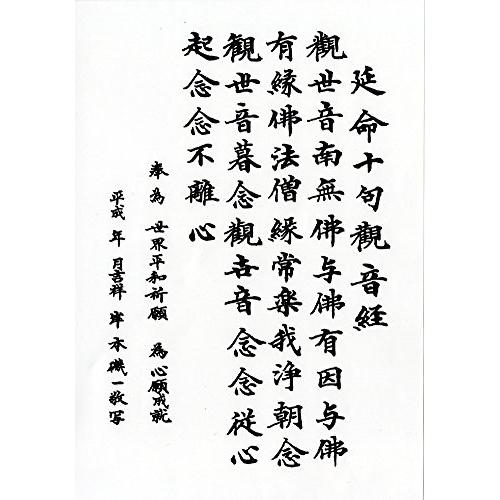 延命十句觀音経
觀世音南無佛与佛有因与佛
有縁佛法僧縁常楽我浄朝念
觀世音暮念觀世音念念従心
起念念不離心
奉為 世界平和祈願 為心願成就
平成 年 月吉祥 岸本磯一敬写